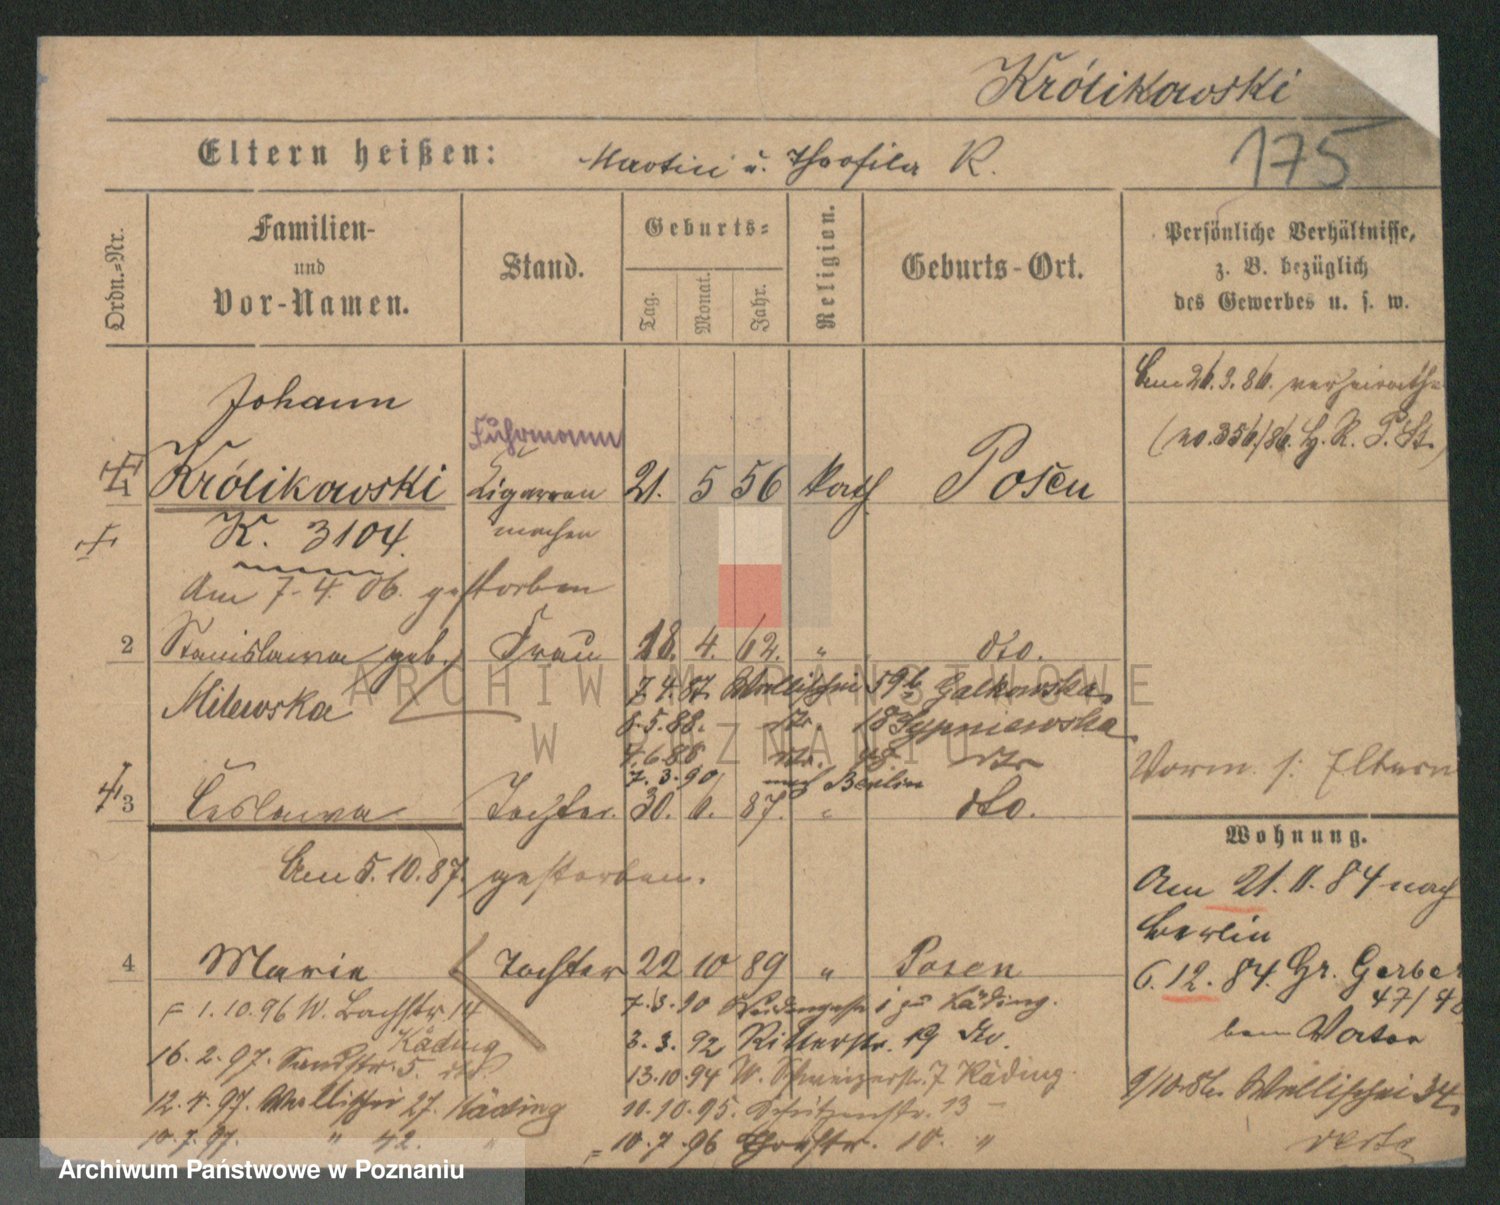 Królikowski
175
Eltern heißen: Martin u. Theofila K.
Ordn.-Nr.
Familien- und Vor-Namen.
Stand.
Geburts-
Tag. Monat. Jahr.
Religion.
Geburts-Ort.
Persönliche Verhältnisse,
z. B. bezüglich
des Gewerbes u. s. w.
Am 26.3.86. verheirathe
(no. 356/86. H. R. P. St.)
Johann
Fuhrmann
1 Królikowski Cigarren 21. 5 56 kath Posen
machen
K. 3104.
Am 7.4.06. gestorben
2 Stanislawa geb. Frau 18. 4. 62. " dto.
Milewska
7.4.87. Wallischei 59b Galkowska
8.5.88. dto. 18 Sypniewska
4.6.88 dto. 48. dto
7.3.90 nach Berlin
3 Ceslawa Tochter. 30. 6. 87. " dto.
Vorm. s. Eltern
Am 5.10.87. gestorben.
Wohnung.
Am 21.11.84 nach
Berlin
6.12.84. Gr. Gerber
47/48
beim Vater
9/10.86. Wallischei 34.
4 Marie Tochter 22 10 89 " Posen
= 1.10.96 W. Bachstr. 14
Käding
16.2.97. Sandstr. 5. dto.
12.4.97. Wallischei 27. Käding
10.7.97. " 42. "
7.3.90 zu Käding.
3.3.92 Ritterstr. 19 dto.
13.10.94 W. 7 Käding.
10.10.95. Schützenstr. 13 –
= 10.7.96 10. "
ARCHIWUM PAŃSTWOWE
W POZNANIU
Archiwum Państwowe w Poznaniu